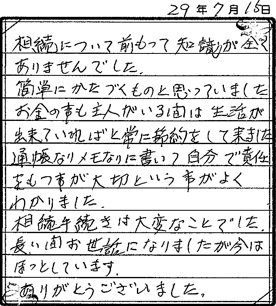 29年7月16日
相続について前もって知識が全く
ありませんでした。
簡単にかたづくものと思っていました
お金の事も主人がいる間は生活が
出来ていればと常に節約をして来ました
通帳なりメモなりに書いて自分で責任
をもつ事が大切という事がよく
わかりました。
相続手続きは大変なことでした。
長い間お世話になりましたが今は
ほっとしています。
ありがとうございました。